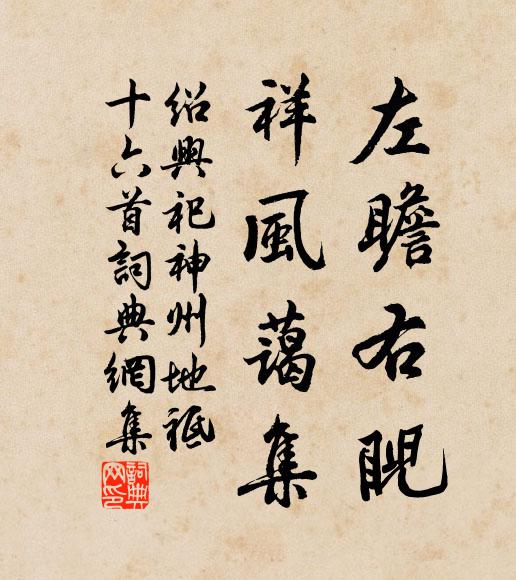 左瞻右睨
祥風藹集
紹興祀神州地祇
十六首詞典網集
詞典网印